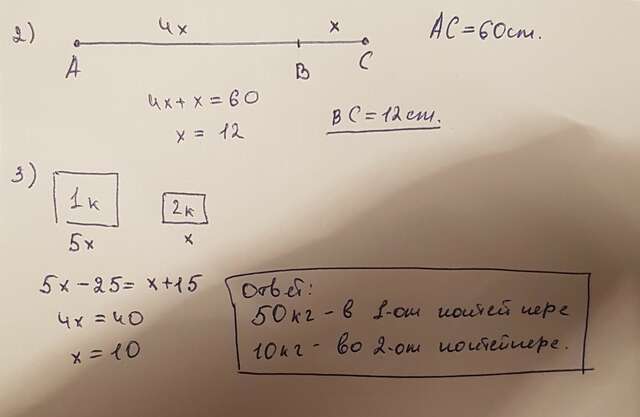 2)
4x x
A B C
AC = 60 cm.
4x + x = 60
x = 12
BC = 12 cm.
3)
1к 2к
5x x
5x - 25 = x + 15
4x = 40
x = 10
Ответ:
50кг - в 1-ом контейнере
10кг - во 2-ом контейнере.